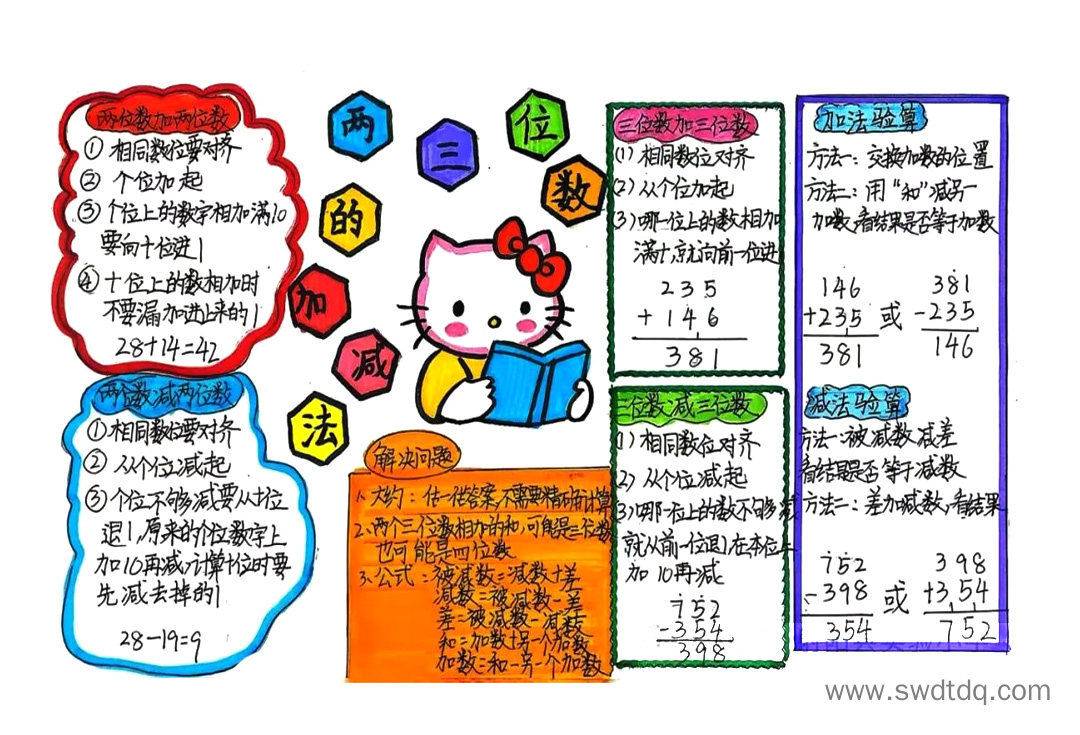 两三位数的加减法
两位数加两位数
① 相同数位要对齐
② 个位加起
③ 个位上的数字相加满10
要向十位进1
④ 十位上的数相加时
不要漏加进上来的1
28+14=42
两个数减两位数
①相同数位要对齐
② 从个位减起
③ 个位不够减要从十位
退1,原来的个位数字上
加10再减,计算十位时要
先减去掉的1
28-19=9
解决问题
1、大约：估一估答案,不需要精确计算
2、两个三位数相加的和,可能是三位数
也可能是四位数
3、公式：被减数=减数+差
减数=被减数-差
差=被减数-减数
和=加数+另一个加数
加数=和-另一个加数
三位数加三位数
(1) 相同数位对齐
(2) 从个位加起
(3) 哪一位上的数相加
满十,就向前一位进
235
+146
381
三位数减三位数
1) 相同数位对齐
2) 从个位减起
3) 哪一位上的数不够减
就从前一位退1,在本位上
加10再减
752
-354
398
加法验算
方法一：交换加数的位置
方法二：用“和”减另一
加数,看结果是否等于加数
146 381
+235 或 -235
381 146
减法验算
方法一：被减数减差
看结果是否等于减数
方法二：差加减数,看结果
752 398
-398 或 +354
354 752
www.swdtdq.com